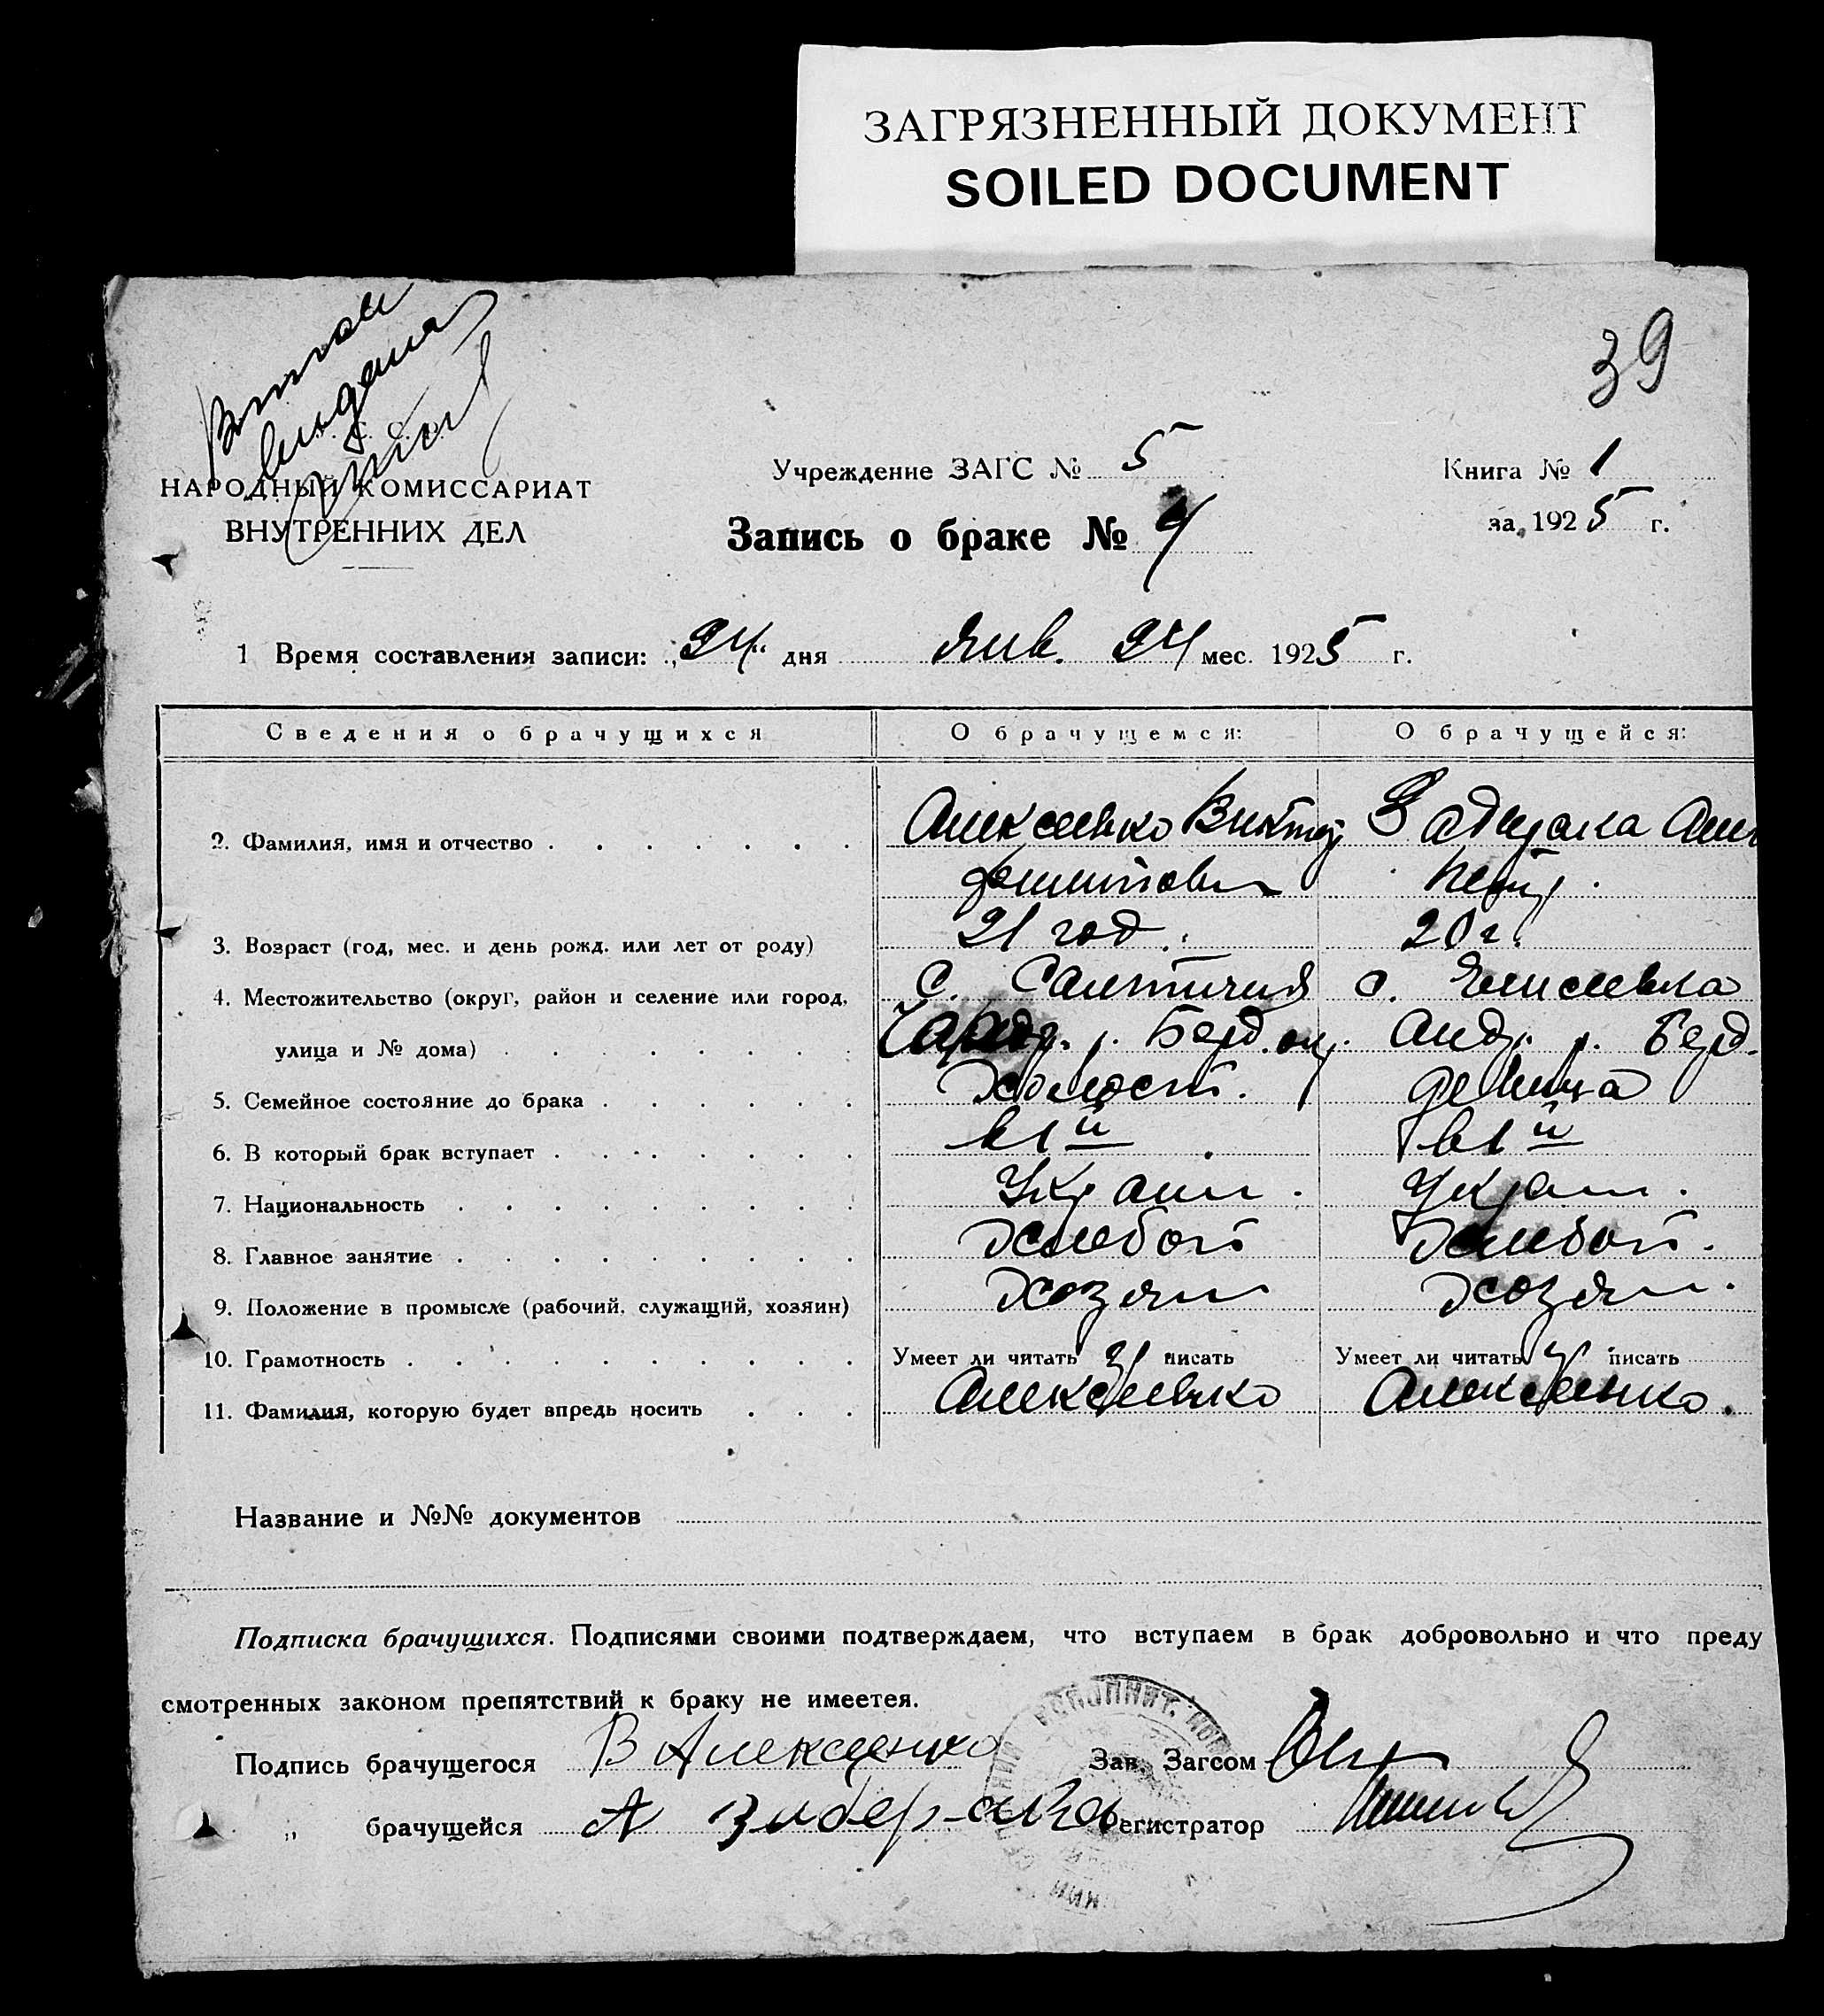 ЗАГРЯЗНЕННЫЙ ДОКУМЕНТ
SOILED DOCUMENT
39
Выпись
выдана
НАРОДНЫЙ КОМИССАРИАТ
ВНУТРЕННИХ ДЕЛ
Учреждение ЗАГС № 5
Книга № 1
за 1925 г.
Запись о браке № 4
1 Время составления записи: „24“ дня янв. 24 мес. 1925 г.
Сведения о брачущихся О брачущемся: О брачущейся:
2. Фамилия, имя и отчество Алексеенко Виктор
Петр.
3. Возраст (год, мес. и день рожд. или лет от роду) 21 год. 20 г.
4. Местожительство (округ, район и селение или город, с. Салтичия с. Елисеевка
улица и № дома) р. Берд. окр. Андр. р. Берд.
5. Семейное состояние до брака Холост. девица
6. В который брак вступает в 1й в 1й
7. Национальность Украин. Украин.
8. Главное занятие Хлебоп Хлебоп.
9. Положение в промысле (рабочий, служащий, хозяин) хозяин хозяин.
10. Грамотность Умеет ли читать писать Умеет ли читать писать
11. Фамилия, которую будет впредь носить Алексеенко Алексеенко.
Название и №№ документов
Подписка брачущихся. Подписями своими подтверждаем, что вступаем в брак добровольно и что преду
смотренных законом препятствий к браку не имеетея.
Подпись брачущегося В Алексеенко Зав. Загсом
„ брачущейся А Регистратор